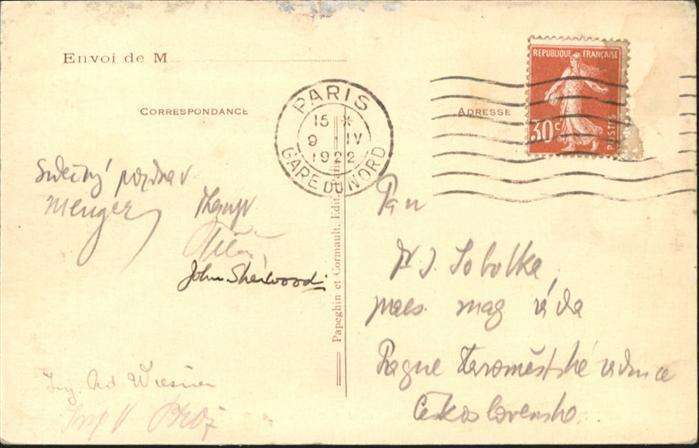 Envoi de M
CORRESPONDANCE
ADRESSE
PARIS
15 *
9 IV
1922
GARE DU NORD
REPUBLIQUE FRANÇAISE
30c
POSTES
Srdečný pozdrav
Menger
John Sherwood
Ing. Wiesner
Ing V
Papeghin et Cormault, Edit.
Pan
Dr J. Sobotka
mag rada
Prague Staroměstské radnice
Československo.